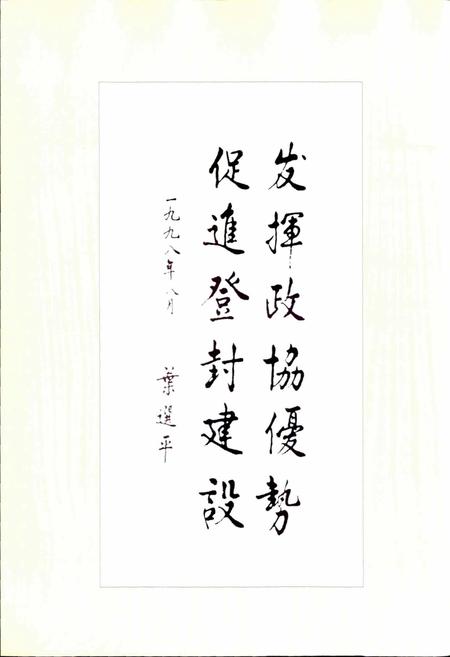 发揮政協優勢
促進登封建設
一九九八年八月 葉選平